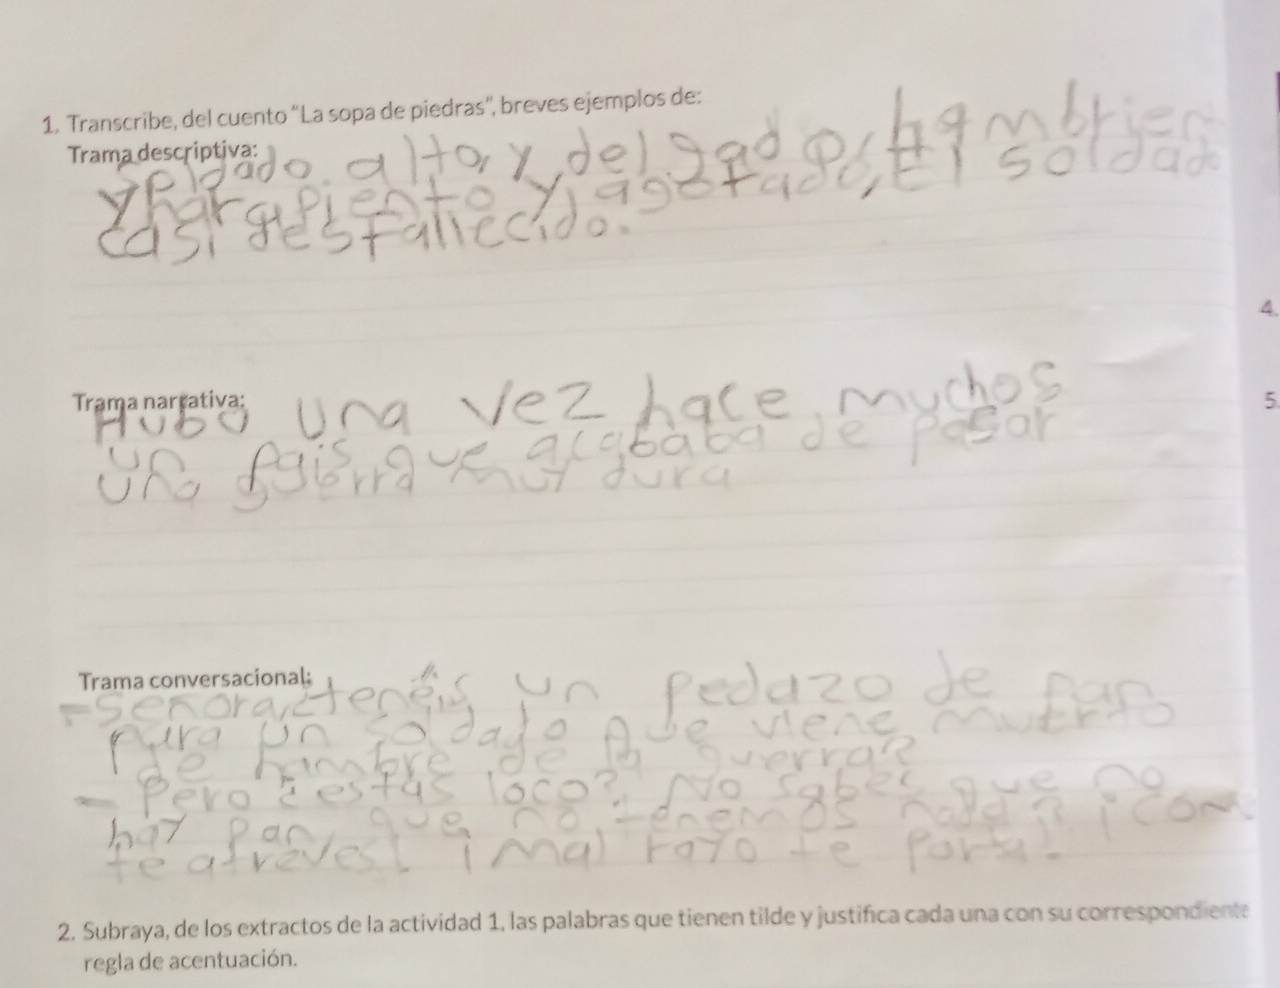 1. Transcribe, del cuento "La sopa de piedras", breves ejemplos de:
Trama descriptiva:
soldado alto, y delgado, hambrien
y harapiento y, agotado, El soldado
casi desfallecido.
4.
Trama narrativa:
Hubo una vez hace, muchos
un pais que acababa de pasar
una guerra muy dura
5.
Trama conversacional:
-señora, ¿tenéis un pedazo de pan
para un soldado que viene muerto
de hambre de la guerra?
- Pero ¿estás loco? No sabes que no
hay pan, que no tenemos nada? ¡Com
te atreves! ¡Mal rayo te parta!
2. Subraya, de los extractos de la actividad 1, las palabras que tienen tilde y justifica cada una con su correspondiente
regla de acentuación.